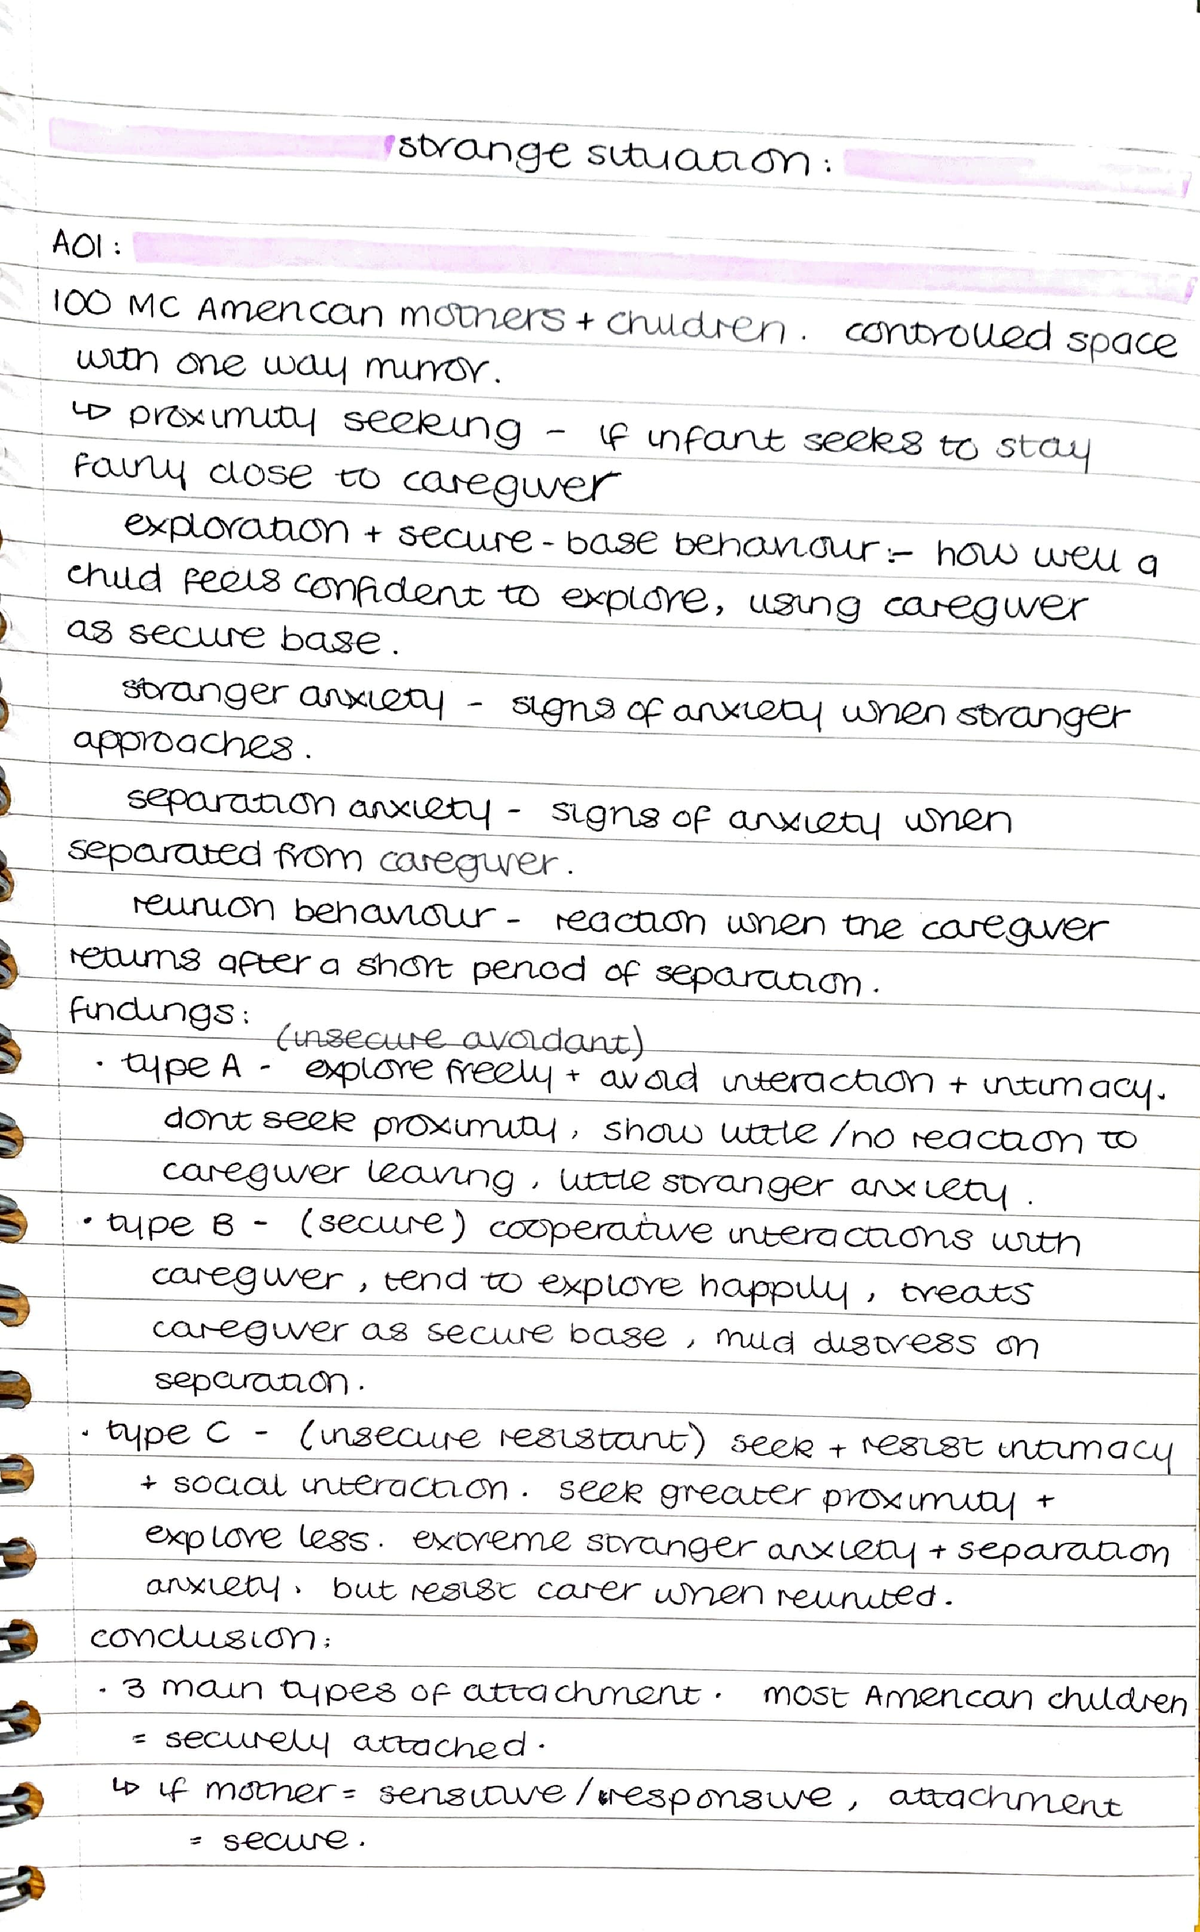 strange situation:
AO1:
100 MC American mothers + children. controlled space
with one way mirror.
↳ proximity seeking - if infant seeks to stay
fairly close to caregiver
exploration + secure-base behaviour:- how well a
child feels confident to explore, using caregiver
as secure base.
stranger anxiety - signs of anxiety when stranger
approaches.
separation anxiety - signs of anxiety when
separated from caregiver.
reunion behaviour - reaction when the caregiver
returns after a short period of separation.
findings:
(insecure avoidant)
· type A - explore freely + avoid interaction + intimacy.
dont seek proximity, show little/no reaction to
caregiver leaving, little stranger anxiety.
· type B - (secure) cooperative interactions with
caregiver, tend to explore happily, treats
caregiver as secure base, mild distress on
separation.
· type C - (insecure resistant) seek + resist intimacy
+ social interaction. seek greater proximity +
explore less. extreme stranger anxiety + separation
anxiety. but resist carer when reunited.
conclusion:
· 3 main types of attachment. most American children
= securely attached.
↳ if mother = sensitive/responsive, attachment
= secure.